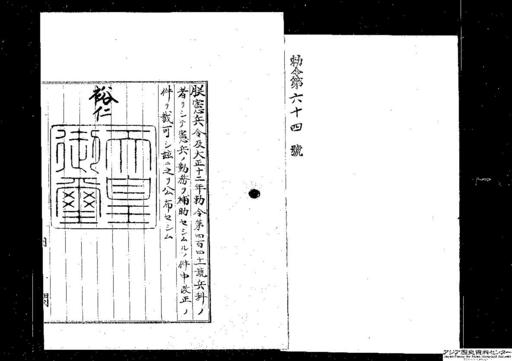 勅令第六十四號
朕憲兵令及大正十二年勅令第四百四十二號兵科ノ
者ヲシテ憲兵ノ勤務ヲ補助セシムルノ件中改正ノ
件ヲ裁可シ玆ニ之ヲ公布セシム
裕仁
天皇
御璽
アジア歴史資料センター